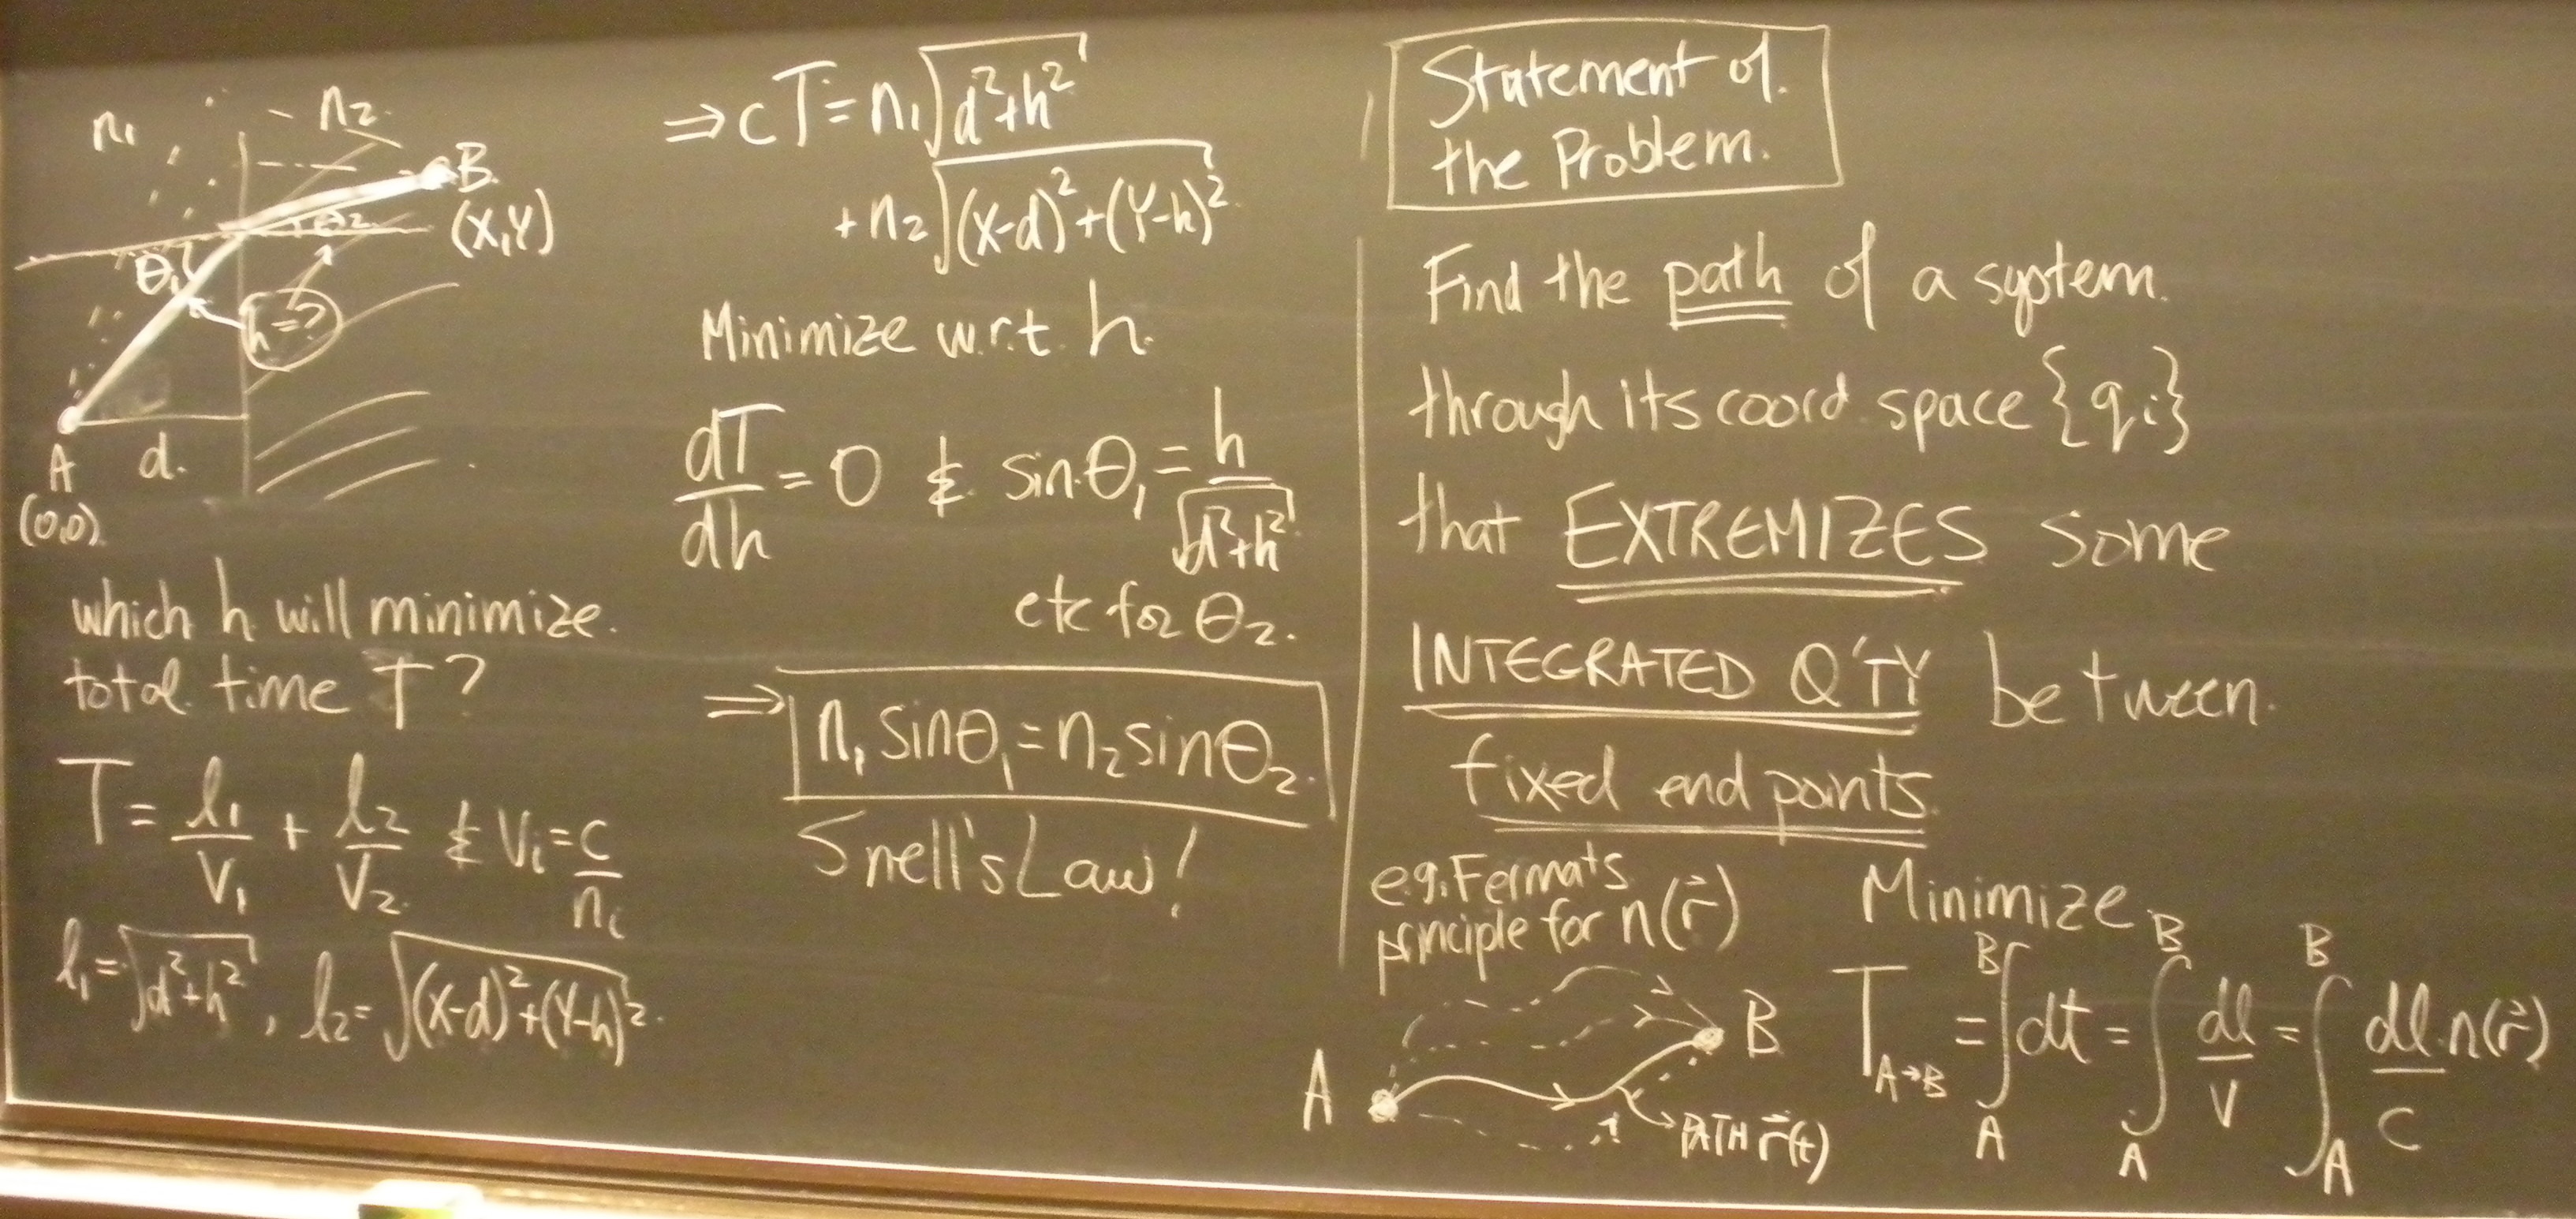 n₁
n₂
B
(X,Y)
θ₁
θ₂
h=?
A
d
(0,0)
which h will minimize
total time T?
T = l₁/V₁ + l₂/V₂ & Vᵢ = c/nᵢ
l₁ = √(d²+h²), l₂ = √((X-d)²+(Y-h)²)
⇒ cT = n₁√(d²+h²)
+ n₂√((X-d)²+(Y-h)²)
Minimize w.r.t. h.
dT/dh = 0 & sinθ₁ = h/√(d²+h²)
etc for θ₂.
⇒ n₁ sinθ₁ = n₂ sinθ₂
Snell's Law!
Statement of
the Problem.
Find the path of a system
through its coord. space {qᵢ}
that EXTREMIZES some
INTEGRATED Q'TY between
fixed end points.
e.g. Fermat's
principle for n(r⃗)
A
B
PATH r⃗(t)
Minimize
T_A→B = ∫_A^B dt = ∫_A^B dl/V = ∫_A^B dl/C n(r⃗)